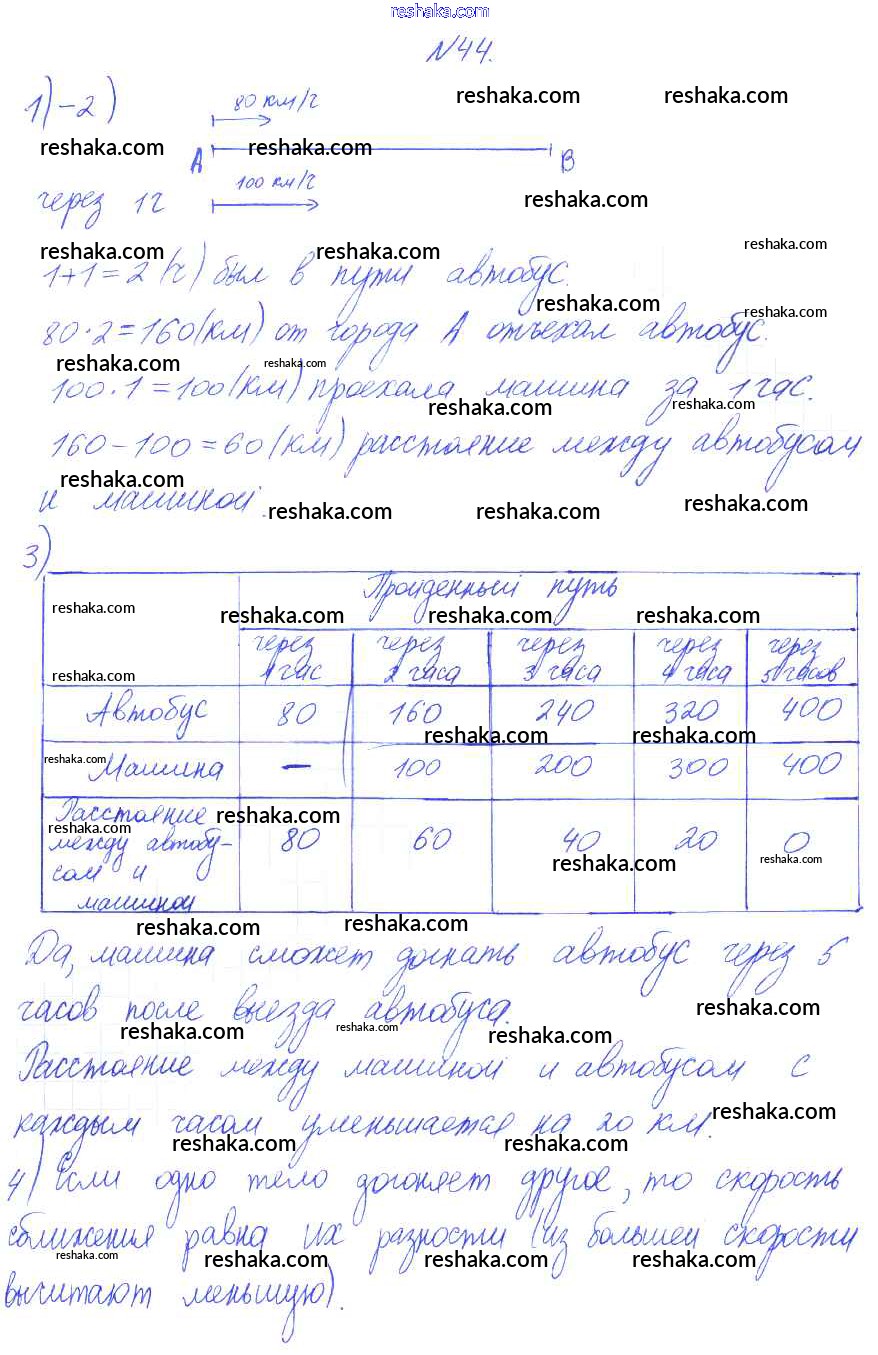 reshaka.com
№44.
1)-2) 80 км/ч
reshaka.com reshaka.com
reshaka.com A reshaka.com B
через 1ч 100 км/ч reshaka.com
reshaka.com reshaka.com reshaka.com
1+1=2 (ч) был в пути автобус.
reshaka.com reshaka.com
80·2=160(км) от города А отъехал автобус.
reshaka.com reshaka.com
100·1=100(км) проехала машина за 1 час.
reshaka.com reshaka.com
160-100=60(км) расстояние между автобусом
reshaka.com
и машиной.
reshaka.com reshaka.com reshaka.com
3)
Пройденный путь
reshaka.com reshaka.com reshaka.com reshaka.com
через 1 час через 2 часа через 3 часа через 4 часа через 5 часов
reshaka.com
Автобус 80 160 240 320 400
reshaka.com reshaka.com
reshaka.com
Машина - 100 200 300 400
Расстояние reshaka.com
reshaka.com
между автобу- 80 60 40 20 0
reshaka.com reshaka.com
сом и
машиной
reshaka.com reshaka.com
Да, машина сможет догнать автобус через 5
часов после выезда автобуса.
reshaka.com
reshaka.com reshaka.com reshaka.com
Расстояние между машиной и автобусом с
каждым часом уменьшается на 20 км.
reshaka.com
reshaka.com reshaka.com
4) Если одно тело догоняет другое, то скорость
сближения равна их разности (из большей скорости
reshaka.com reshaka.com reshaka.com reshaka.com
вычитают меньшую).